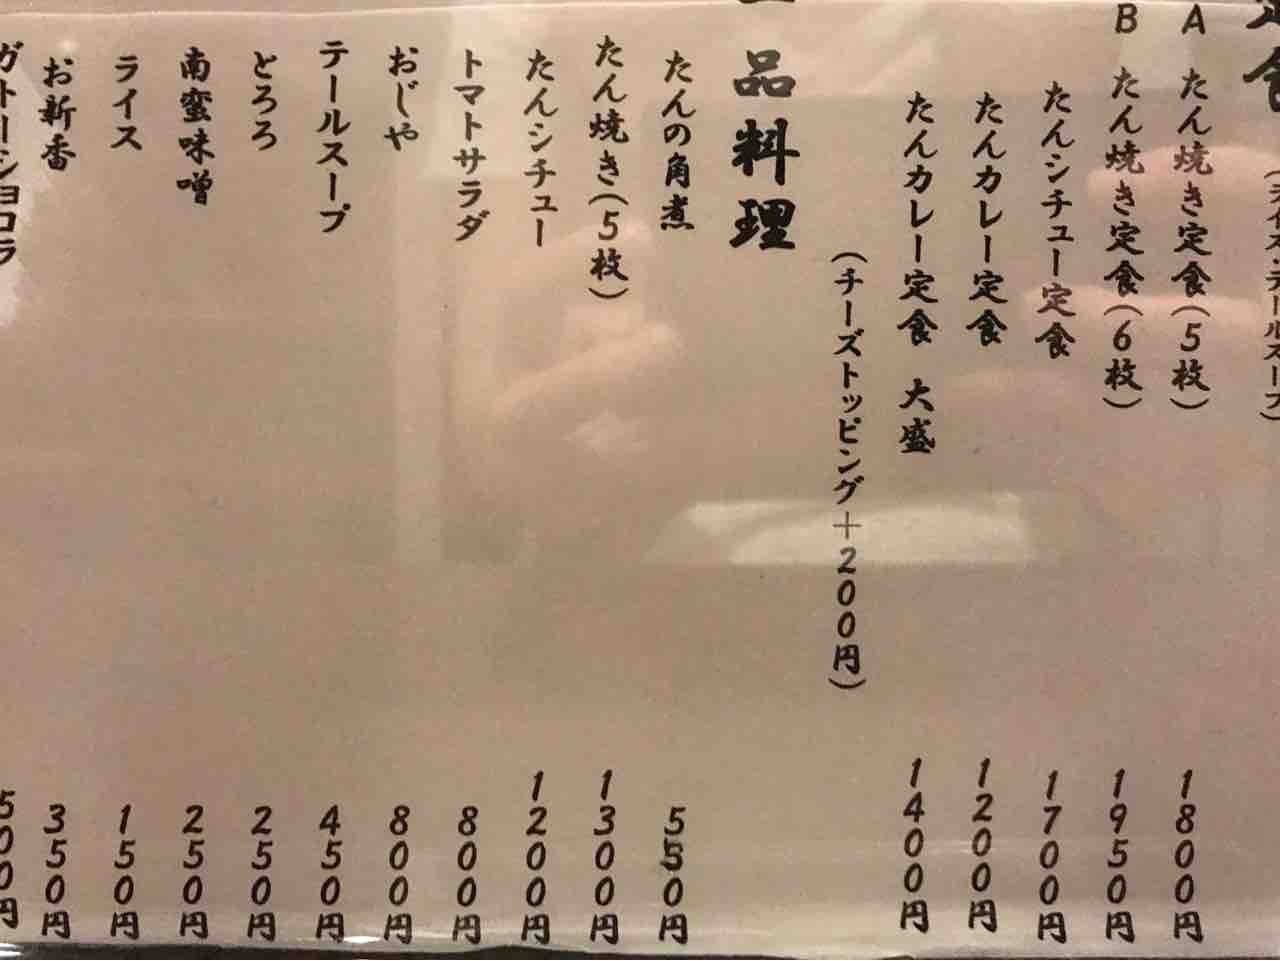 定食
(ライス・テールスープ)
A たん焼き定食(5枚) 1800円
B たん焼き定食(6枚) 1950円
たんシチュー定食 1700円
たんカレー定食 1200円
たんカレー定食 大盛 1400円
(チーズトッピング+200円)
品料理
たんの角煮 550円
たん焼き(5枚) 1300円
たんシチュー 1200円
トマトサラダ 800円
おじや 800円
テールスープ 450円
とろろ 250円
南蛮味噌 250円
ライス 150円
お新香 350円
ガトーショコラ 500円